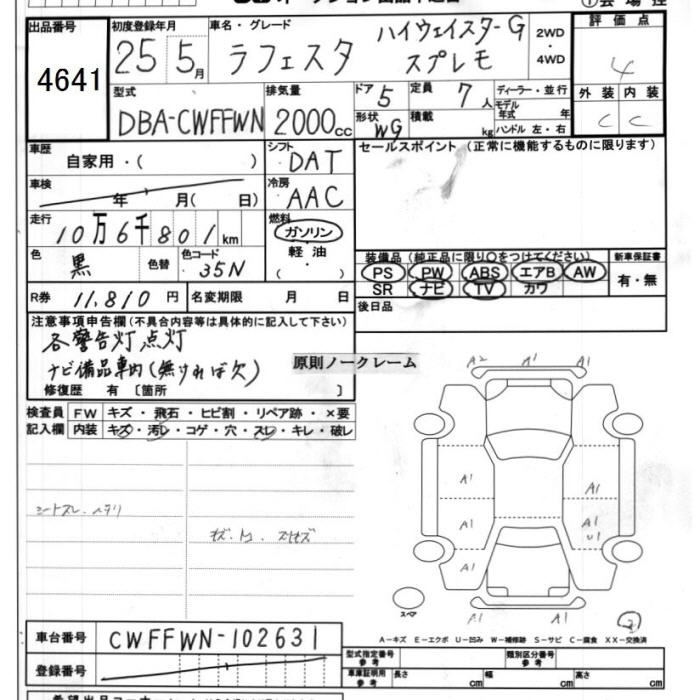 出品番号
4641
初度登録年月
25 5月
車名・グレード
ラフェスタ
ハイウェイスターG
スプレモ
2WD
・
4WD
評価点
4
外装 内装
C C
型式
DBA-CWFFWN
排気量
2000cc
ドア 5
定員 7人
ディーラー・並行
形状 WG
積載 kg
モデル年式 年
ハンドル 左・右
車歴
自家用・( )
シフト
DAT
セールスポイント(正常に機能するものに限ります)
車検
年 月( 日)
冷房
AAC
走行
10万6千801km
燃料
ガソリン
軽油・
( )
色
黒
色替
色コード
35N
装備品(純正品に限り○をつけてください)
PS PW ABS エアB AW
SR ナビ TV カワ
新車保証書
有・無
R券 11,810円
名変期限 月 日
後日品
注意事項申告欄(不具合内容等は具体的に記入して下さい)
各警告灯点灯
ナビ備品車内(無ければ欠)
修復歴 有 〔箇所 〕
原則ノークレーム
検査員
記入欄
FW キズ・飛石・ヒビ割・リペア跡・×要
内装 キズ・汚レ・コゲ・穴・スレ・キレ・破レ
シートスレ、ヘタリ
A2 A1 A1
A1 A1
A1 A1
U1
A1 A1
A1 A1
スペア
A-キズ E-エクボ U-凹み W-補修跡 S-サビ C-腐食 XX-交換済
車台番号
CWFFWN-102631
登録番号
型式指定番号
参考
類別区分番号
参考
車庫証明用
参考
長さ cm
幅 cm
高さ cm